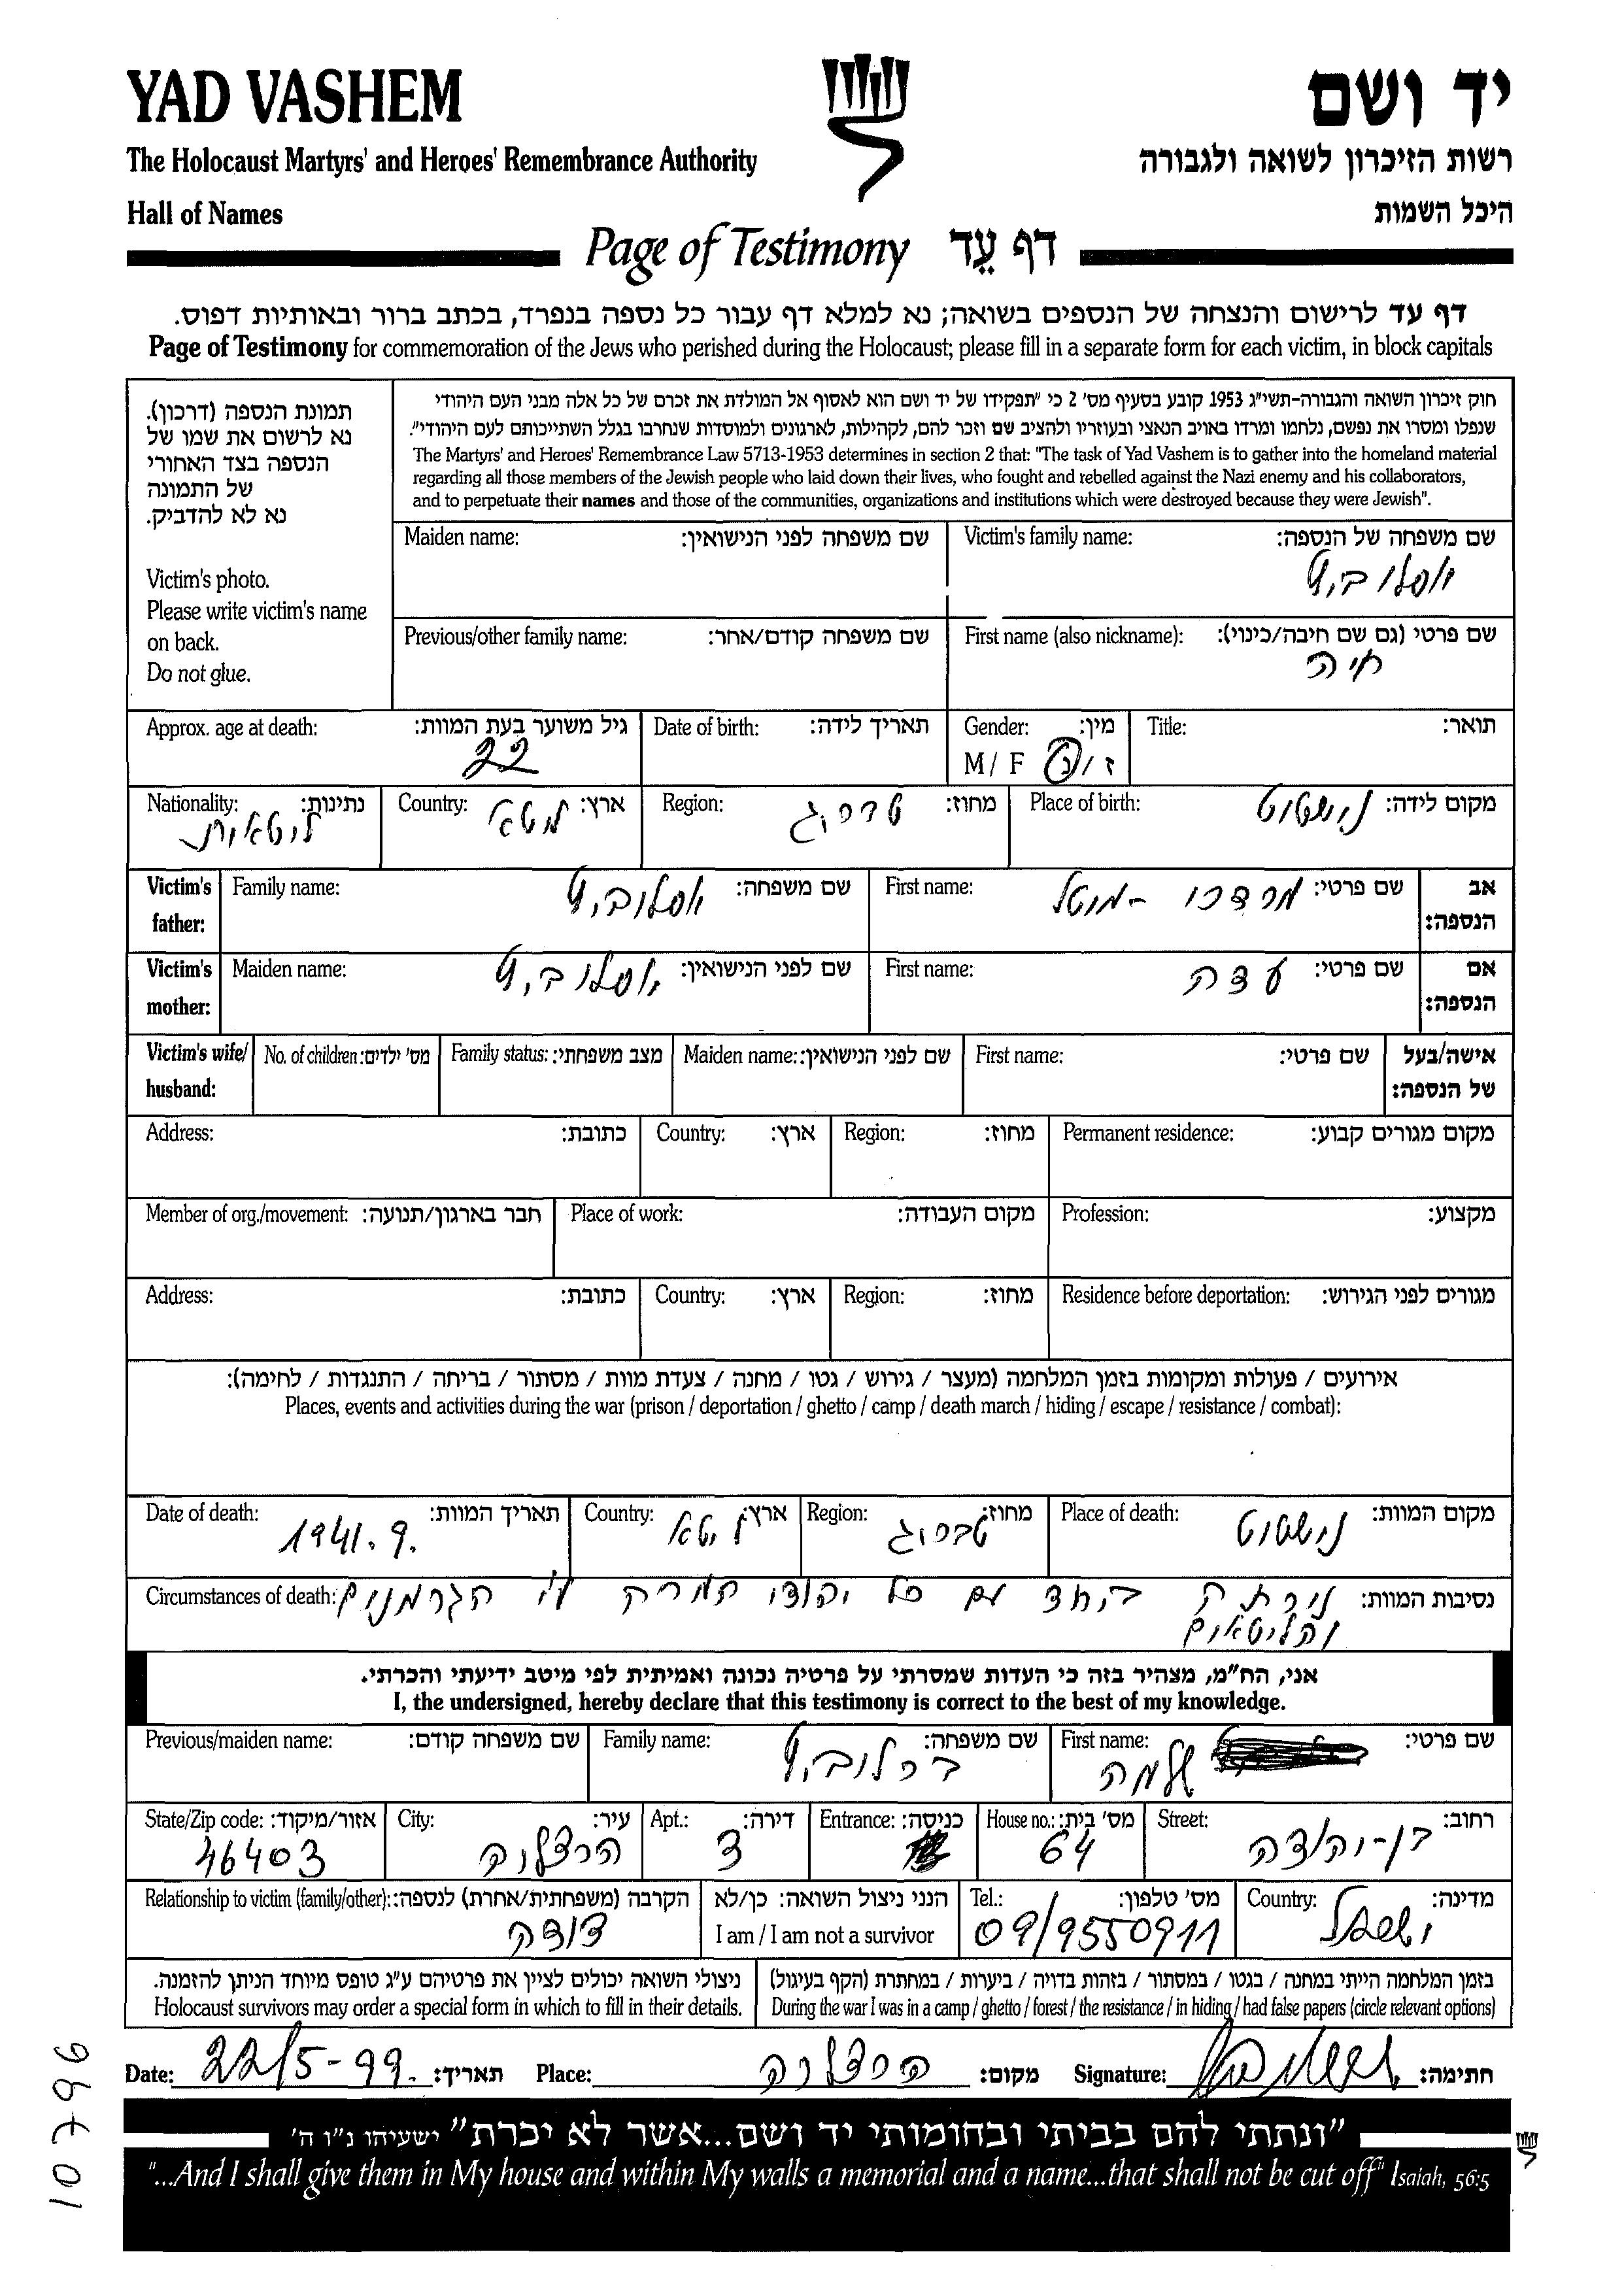 YAD VASHEM
יד ושם
The Holocaust Martyrs' and Heroes' Remembrance Authority
רשות הזיכרון לשואה ולגבורה
Hall of Names
היכל השמות
Page of Testimony דף עֵד
דף עד לרישום והנצחה של הנספים בשואה; נא למלא דף עבור כל נספה בנפרד, בכתב ברור ובאותיות דפוס.
Page of Testimony for commemoration of the Jews who perished during the Holocaust; please fill in a separate form for each victim, in block capitals
תמונת הנספה (דרכון).
נא לרשום את שמו של
הנספה בצד האחורי
של התמונה
נא לא להדביק.
Victim's photo.
Please write victim's name
on back.
Do not glue.
חוק זיכרון השואה והגבורה-תשי"ג 1953 קובע בסעיף מס' 2 כי "תפקידו של יד ושם הוא לאסוף אל המולדת את זכרם של כל אלה מבני העם היהודי
שנפלו ומסרו את נפשם, נלחמו ומרדו באויב הנאצי ובעוזריו ולהציב שם וזכר להם, לקהילות, לארגונים ולמוסדות שנחרבו בגלל השתייכותם לעם היהודי".
The Martyrs' and Heroes' Remembrance Law 5713-1953 determines in section 2 that: "The task of Yad Vashem is to gather into the homeland material
regarding all those members of the Jewish people who laid down their lives, who fought and rebelled against the Nazi enemy and his collaborators,
and to perpetuate their names and those of the communities, organizations and institutions which were destroyed because they were Jewish".
Maiden name: שם משפחה לפני הנישואין: Victim's family name: שם משפחה של הנספה:
Previous/other family name: שם משפחה קודם/אחר: First name (also nickname): שם פרטי (גם שם חיבה/כינוי):
חיה
Approx. age at death: גיל משוער בעת המוות: Date of birth: תאריך לידה: Gender: מין: Title: תואר:
22 M / F ז / נ
Nationality: נתינות: Country: ארץ: Region: מחוז: Place of birth: מקום לידה:
ליטאית ליטא טברוג נוישטוט
Victim's father: Family name: שם משפחה: First name: שם פרטי: מרדכי - מוטל אב הנספה:
Victim's mother: Maiden name: שם לפני הנישואין: First name: שם פרטי: עדה אם הנספה:
Victim's wife/ husband: No. of children: מס' ילדים: Family status: מצב משפחתי: Maiden name: שם לפני הנישואין: First name: שם פרטי: אישה/בעל של הנספה:
Address: כתובת: Country: ארץ: Region: מחוז: Permanent residence: מקום מגורים קבוע:
Member of org./movement: חבר בארגון/תנועה: Place of work: מקום העבודה: Profession: מקצוע:
Address: כתובת: Country: ארץ: Region: מחוז: Residence before deportation: מגורים לפני הגירוש:
אירועים / פעולות ומקומות בזמן המלחמה (מעצר / גירוש / גטו / מחנה / צעדת מוות / מסתור / בריחה / התנגדות / לחימה):
Places, events and activities during the war (prison / deportation / ghetto / camp / death march / hiding / escape / resistance / combat):
Date of death: תאריך המוות: Country: ארץ: Region: מחוז: Place of death: מקום המוות:
1941.9. ליטא טברוג נוישטוט
Circumstances of death: נסיבות המוות: נורתה ביחד עם כל יהודי ע"י הגרמנים
והליטאים
אני, הח"מ, מצהיר בזה כי העדות שמסרתי על פרטיה נכונה ואמיתית לפי מיטב ידיעתי והכרתי.
I, the undersigned, hereby declare that this testimony is correct to the best of my knowledge.
Previous/maiden name: שם משפחה קודם: Family name: שם משפחה: First name: שם פרטי:
ברלוביץ שלמה
State/Zip code: אזור/מיקוד: City: עיר: Apt.: דירה: Entrance: כניסה: House no.: מס' בית: Street: רחוב:
46403 הרצליה 3 64 בן-יהודה
Relationship to victim (family/other): הקרבה (משפחתית/אחרת) לנספה: הנני ניצול השואה: כן/לא Tel.: מס' טלפון: Country: מדינה:
דודה I am / I am not a survivor 09/9550911 ישראל
ניצולי השואה יכולים לציין את פרטיהם ע"ג טופס מיוחד הניתן להזמנה.
Holocaust survivors may order a special form in which to fill in their details.
בזמן המלחמה הייתי במחנה / בגטו / במסתור / בזהות בדויה / ביערות / במחתרת (הקף בעיגול)
During the war I was in a camp / ghetto / forest / the resistance / in hiding / had false papers (circle relevant options)
Date: 22/5-99. תאריך: Place: הרצליה מקום: Signature: חתימה:
"ונתתי להם בביתי ובחומותי יד ושם...אשר לא יכרת" ישעיהו נ"ו ה'
"...And I shall give them in My house and within My walls a memorial and a name...that shall not be cut off" Isaiah, 56:5